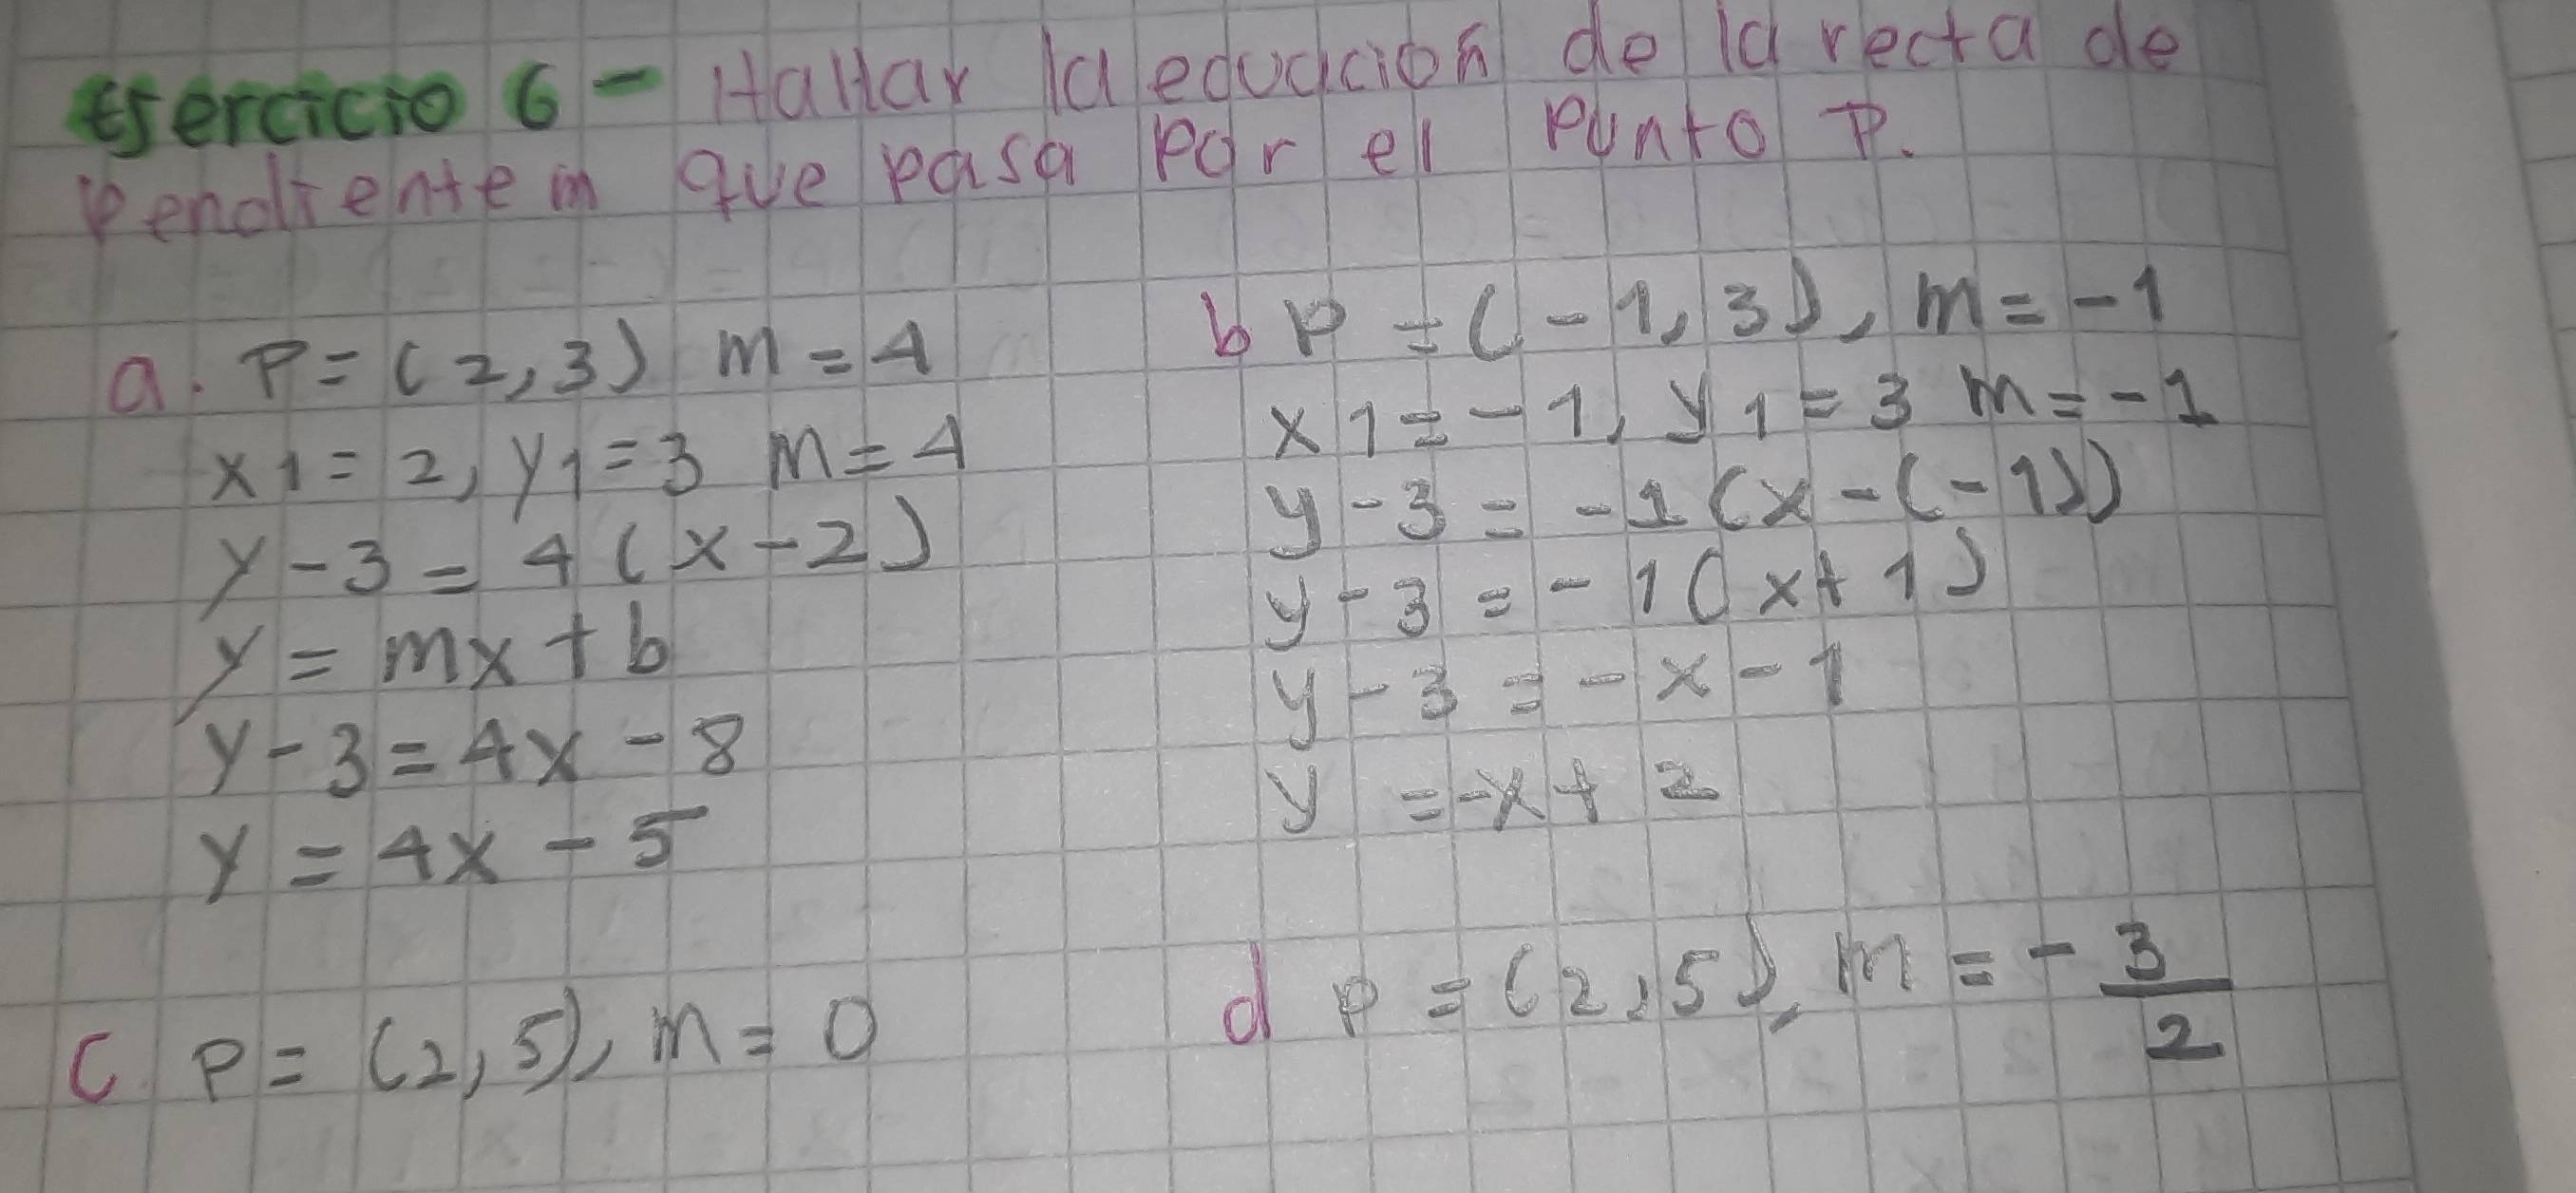 Ejercicio 6 - Hallar la ecuación de la recta de
pendiente m que pasa por el punto P.
a. P = (2,3) m = 4
x1 = 2, y1 = 3 m = 4
y - 3 = 4 (x - 2)
y = mx + b
y - 3 = 4x - 8
y = 4x - 5
b P = (-1, 3), m = -1
x1 = -1, y1 = 3 m = -1
y - 3 = -1 (x - (-1))
y - 3 = -1 (x + 1)
y - 3 = -x - 1
y = -x + 2
c. P = (2,5), m = 0
d P = (2,5), m = - 3/2